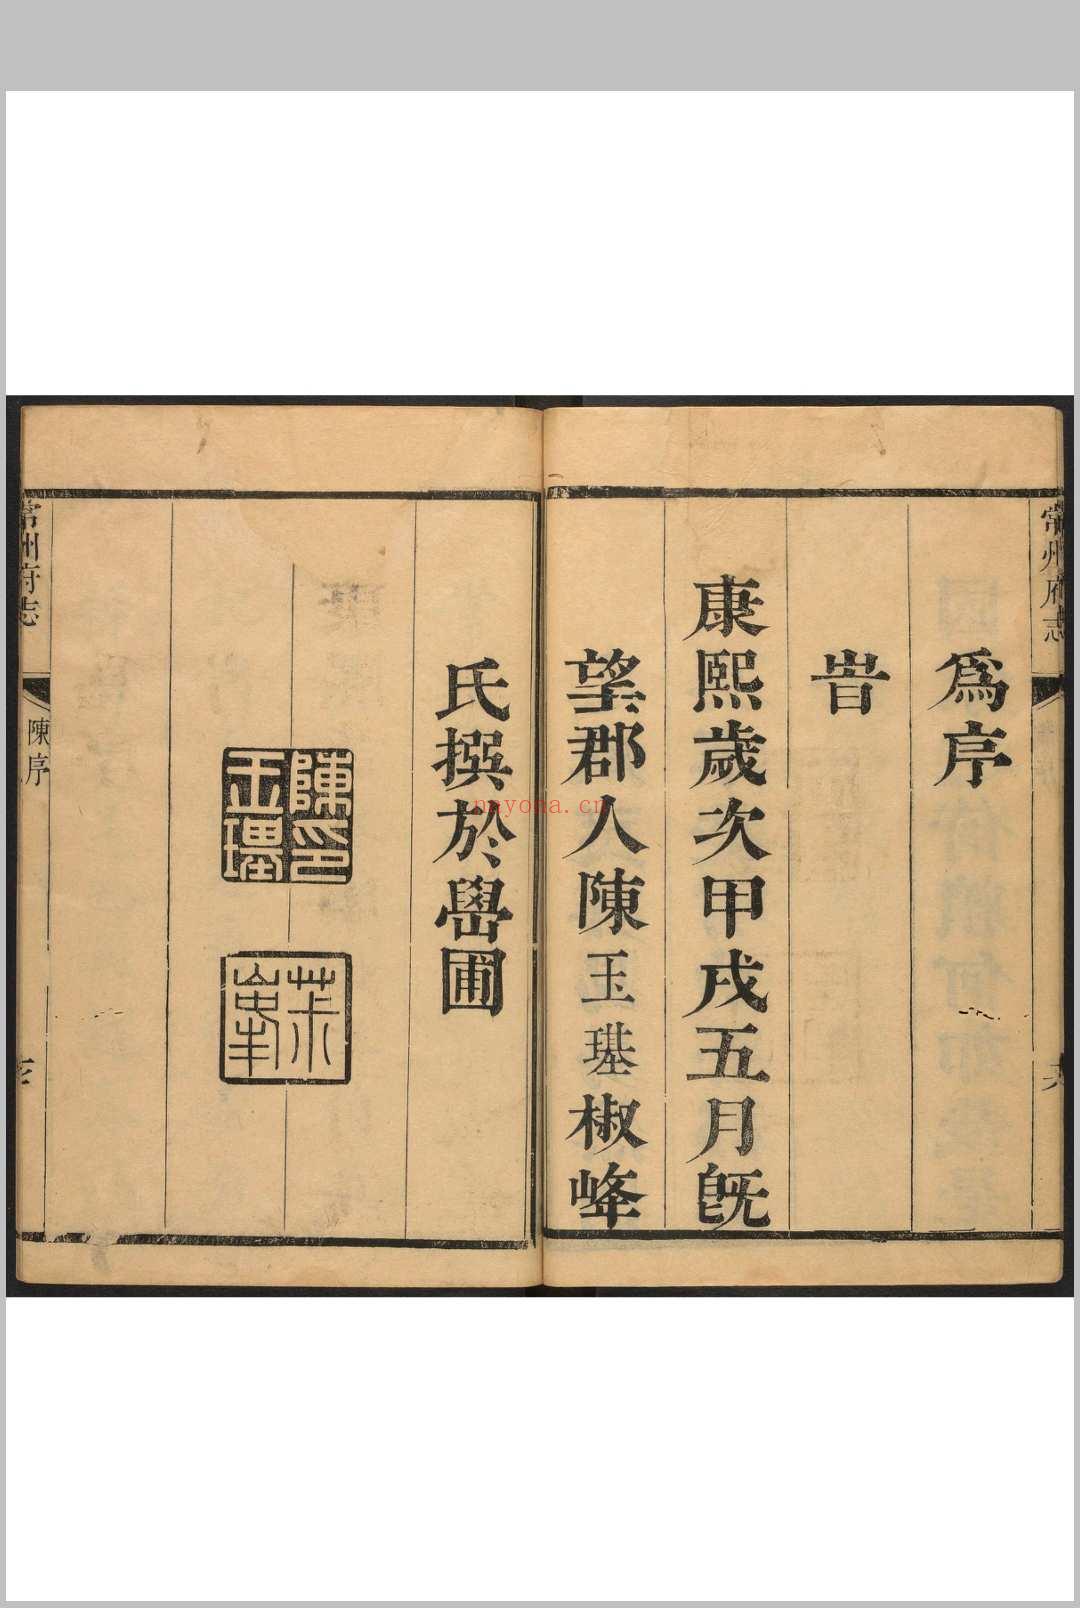 常州府志
為序
旹
康熙歲次甲戌五月旣
望郡人陳玉璂椒峰
氏撰於嶨圃
陳印
玉璂
茮
峯
常州府志
陳序
nayona.cn